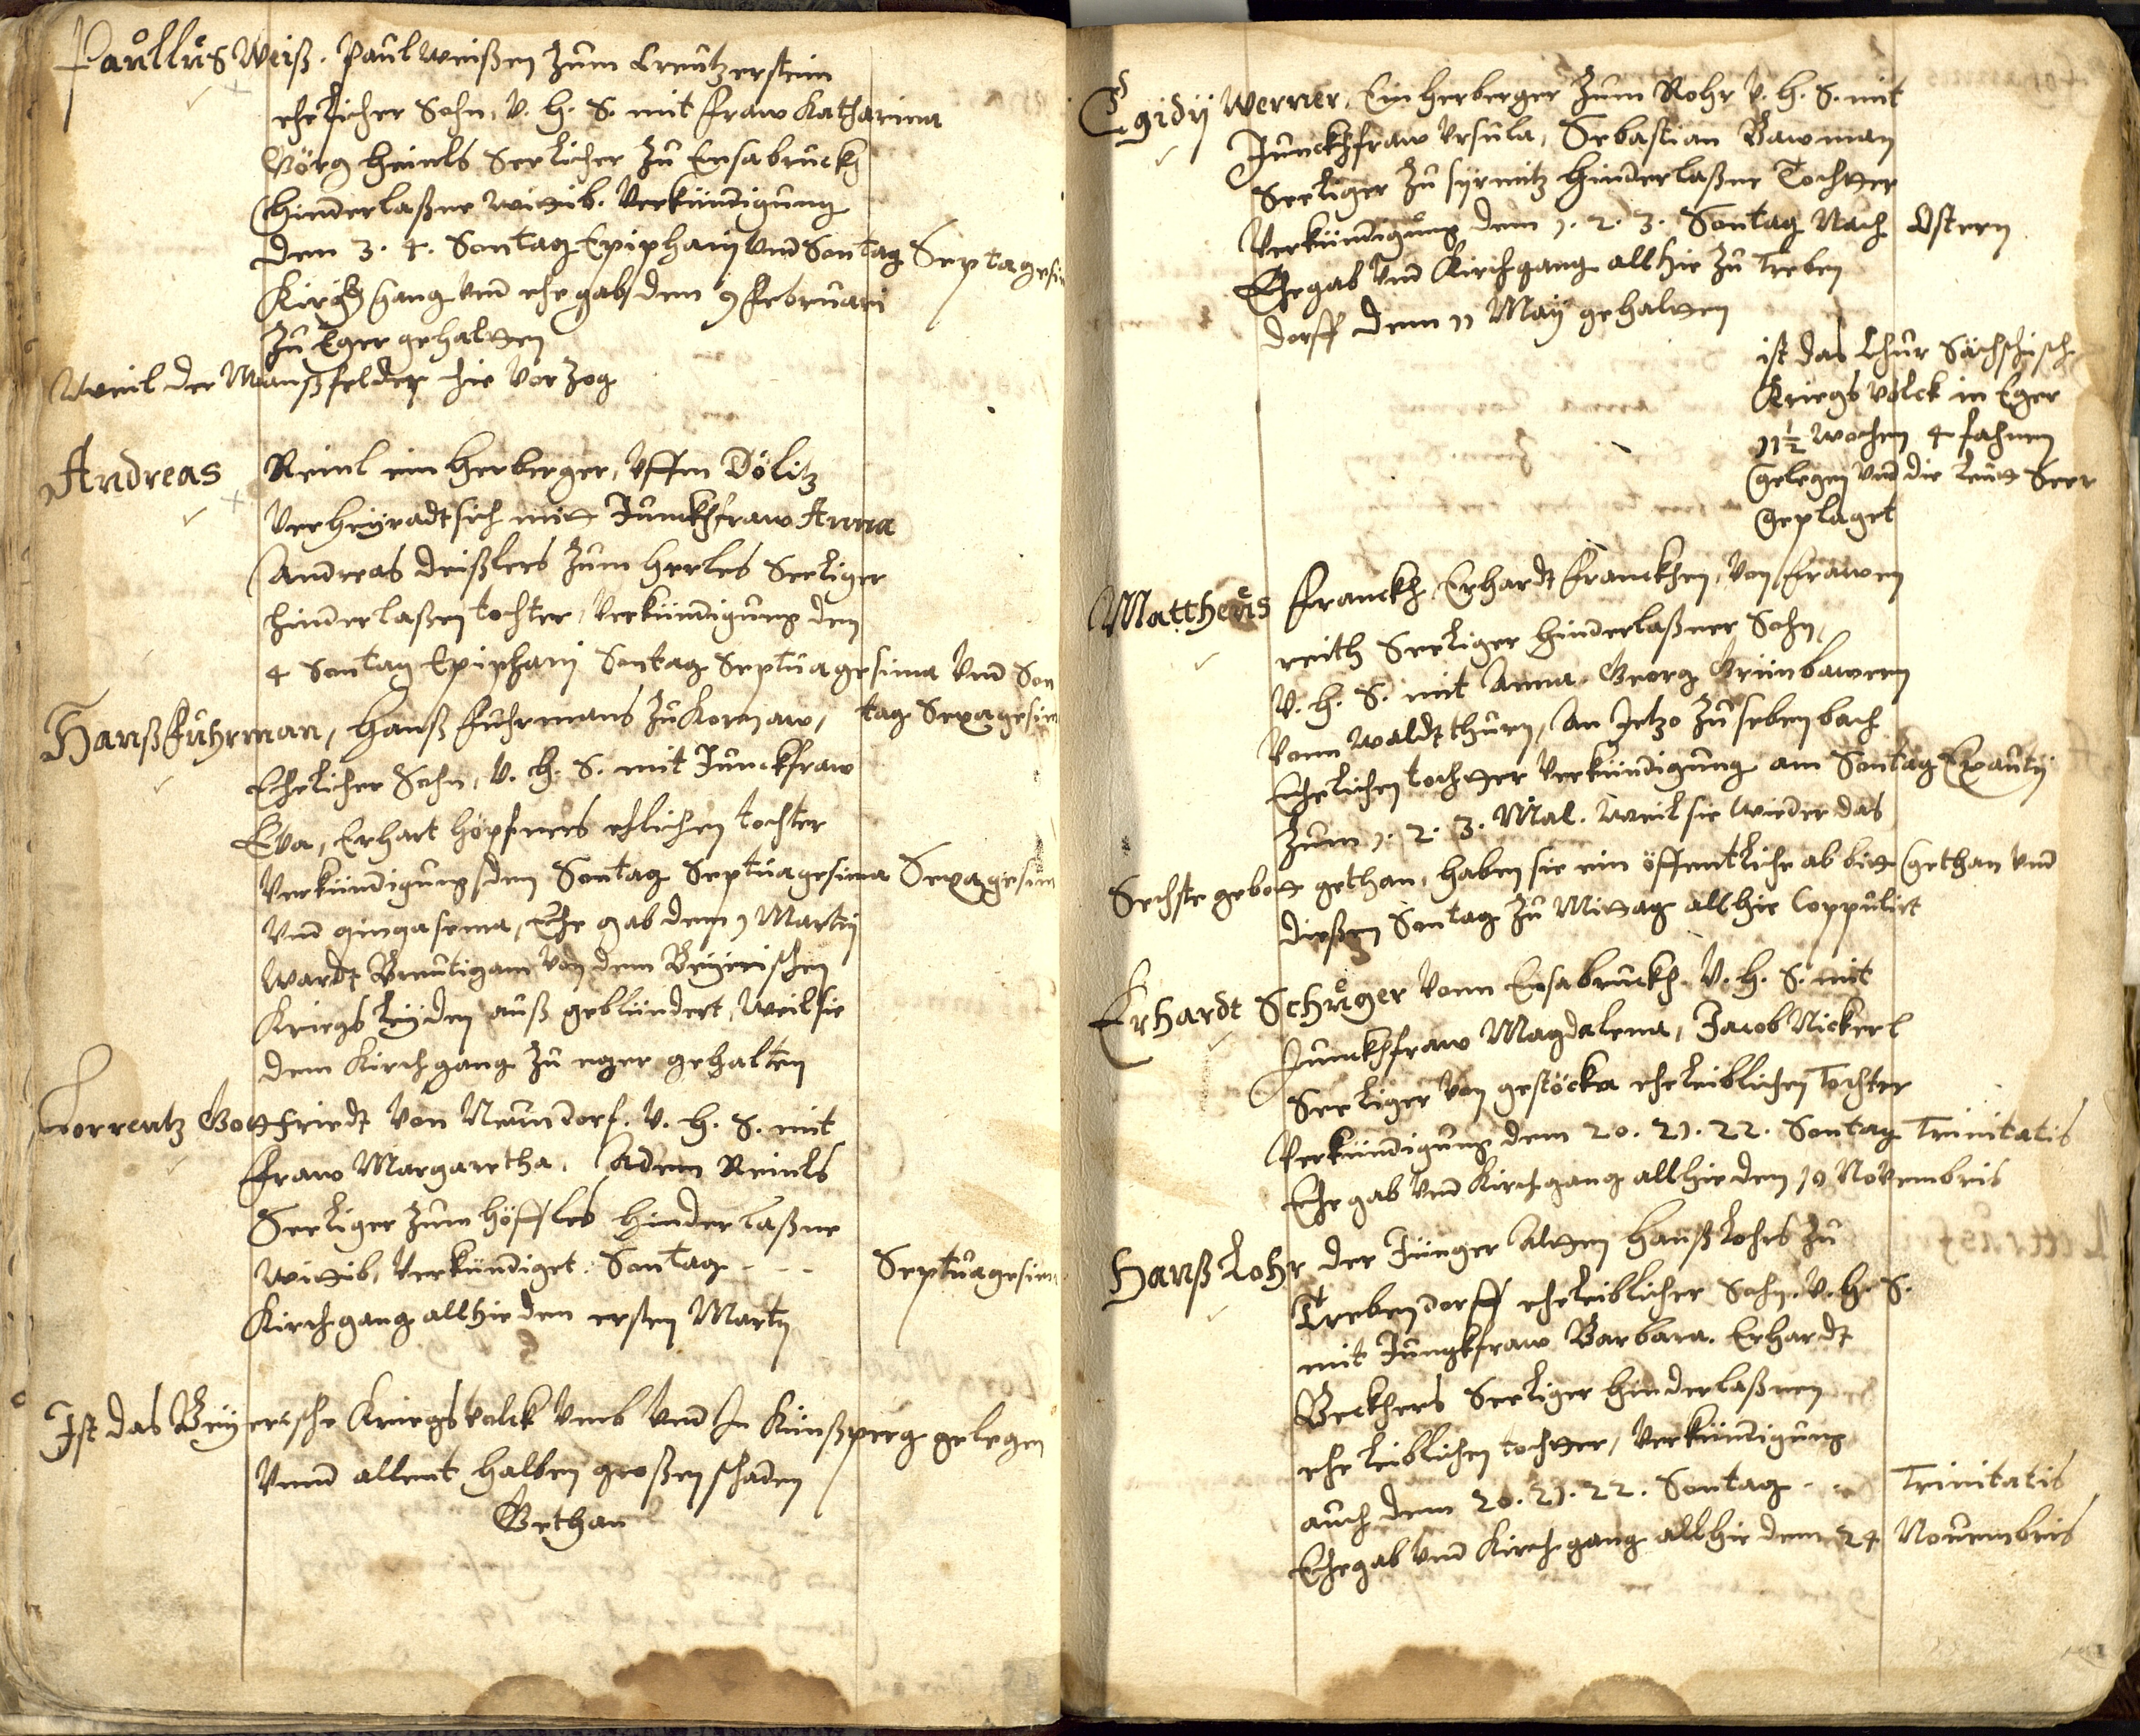 Paullus Weiß. Paul Weißen zum Creutzerstein
ehelicher Sohn, V. H. S. mit fraw Katharina
Görg Heinls Seelicher zu Ensabruckh
hinderlaßne wittib. Verkündigung
den 3. 4. Sontag Epiphanij vnd Sontag Septagesi
Kirchgang vnd ehegab den 9 februari
zu Eger gehaltten
Weil der Manßfelder hie vor zog
Andreas Reinl ein herberger, Vffm Dölitz
Verheyradt sich mitt Junckhfraw Anna
Andreas Deißlers zum Herles Seeliger
hinderlaßen tochter, Verkündigung den
4 Sontag Epiphanj Sontag Septuagesima vnd Son
tag Sexagesim
Hanß fuhrman, Hanß fuhrmans zu Kornaw,
Ehelicher Sohn, V. H. S. mit Junckfraw
Eva, Erhart Höpfners ehlichen tochter
Verkündigung den Sontag Septuagesima Sexagesim
vnd qinqasema, Ehe gab den 1 Martij
Wardt Breutigam Von dem Beyerischen
Kriegs leyden auß geblündert, Weil sie
dem Kirchgang zu eger gehalten
Lorrentz Gottfriedt Von Neundorf. V. H. S. mit
fraw Margaretha, Adem Reinls
Seeliger zum Höffles hinderlaßne
wittib, Verkündiget. Sontag - - - Septuagesim
Kirchgang allhie den ersten Martij
Ist das Beyerische Kriegsvolck Vmb vnd In Künßperg gelegen
Vnnd allent halben großen schaden
Gethan
Egidij Werner, Ein herberger zum Rohr V. H. S. mit
Junckhfraw Vrsula, Sebastian Bawman
Seeliger zu syrmitz hinderlaßne Tochtter
Verkündigung dem 1. 2. 3. Sontag Nach Ostern
Ehegab vnd Kirchgang allhie zu Treben
dorff dem 11 Maij gehaltten
ist das Chur Sächschisch
Kriegs volck in Eger
11½ wochen 4 fahnen
gelegen vnd die Leutt Seer
geplaget
Mattheus franckh Erhardt franckhen, Von frawen
reith Seeliger hinderlaßner Sohn,
V. H. S. mit Anna, Georg Grünbawren
Vonn Waldtthurn, An Jetzo zu sebenbach
Ehelichen tochtter Verkündigung am Sontag Exaudij
Zum 1. 2. 3. Mal. Weil sie wieder das
Sechste gebott gethan, haben sie ein öffentliche ab bitt gethan vnd
dießen Sontag zu Mittag allhie Coppulirt
Erhardt Schuger Vonn Ensabruckh. V. H. S. mit
Junckhfraw Magdalena, Jacob Nickerl
Seeliger Von gestöcka eheleiblichen Tochter
Verkündigung dem 20. 21. 22. Sontag Trinitatis
Ehegab vnd Kirchgang allhie den 10 Novembris
Hanß Lohr der Jünger Altten Hanß Lohrs zu
Trebendorff eheleiblicher Sohn. V. H. S.
mit Jungkfraw Barbara. Erhardt
Beckhers Seeliger hinderlaßnen
eheleiblichen tochtter, Verkündigung
auch dem 20. 21. 22. Sontag - - Trinitatis
Ehegab vnd Kirchgang allhie dem 24 Novembris